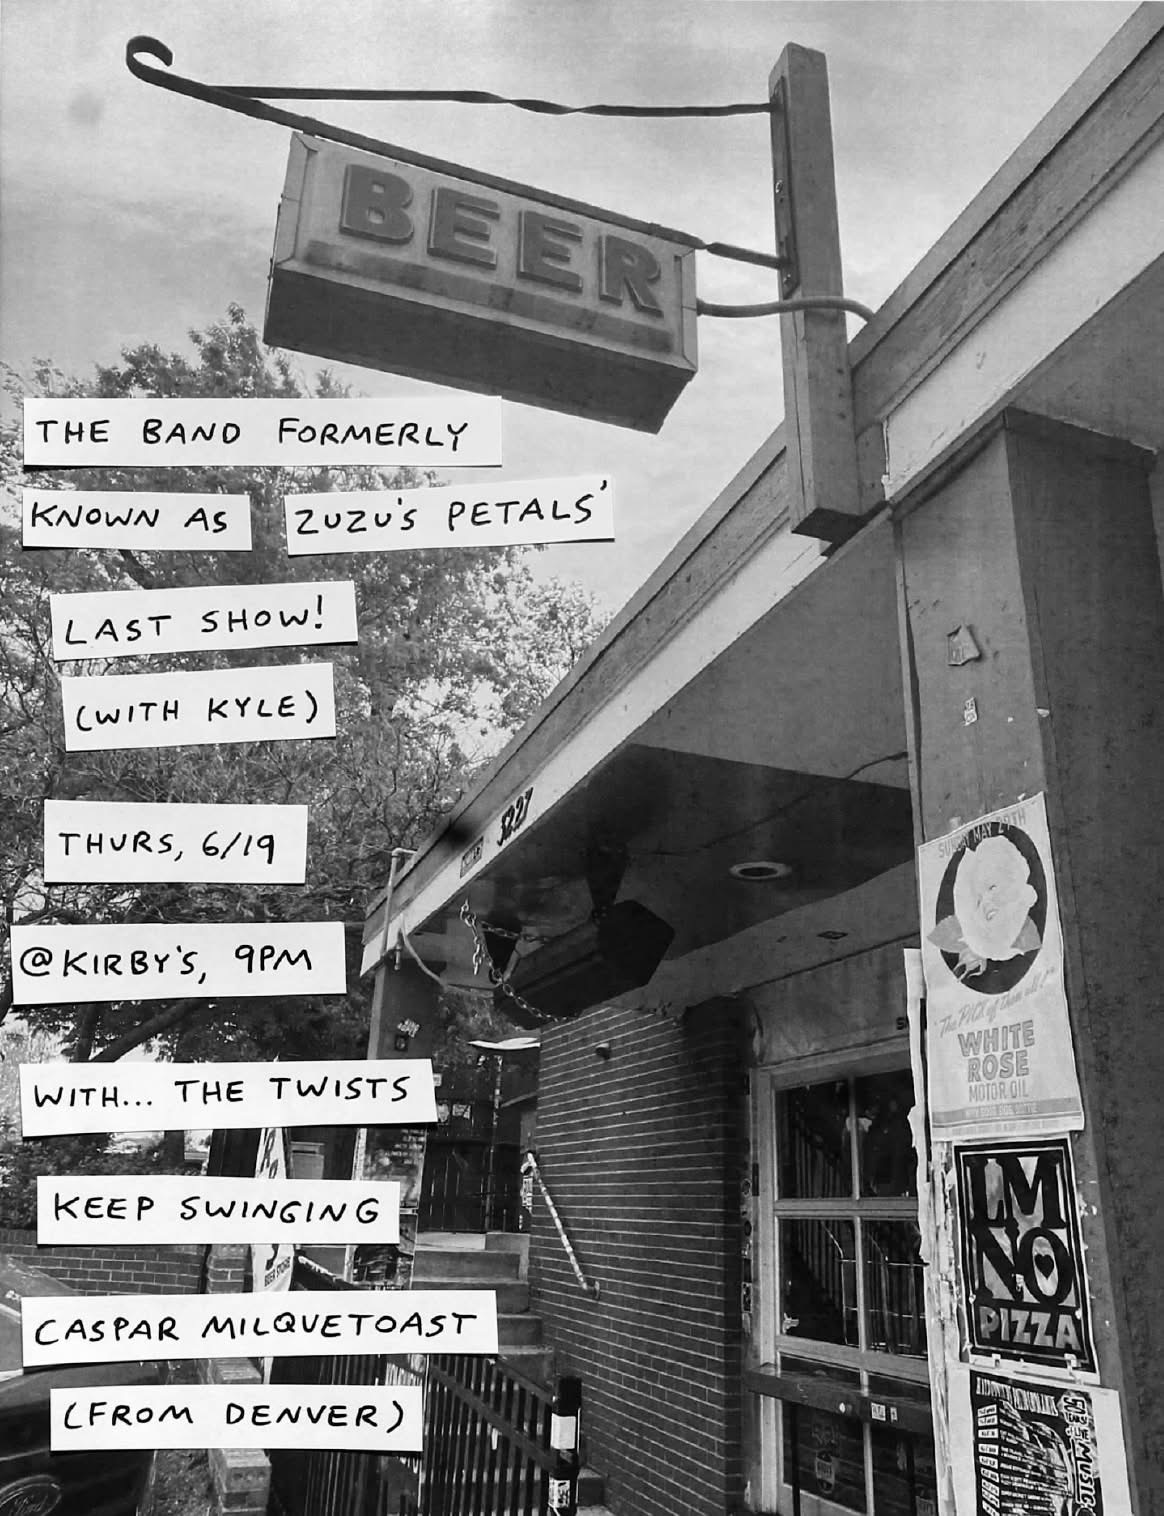 BEER
THE BAND FORMERLY
KNOWN AS ZUZU'S PETALS'
LAST SHOW!
(WITH KYLE)
THURS, 6/19
@KIRBY'S, 9PM
WITH... THE TWISTS
KEEP SWINGING
CASPAR MILQUETOAST
(FROM DENVER)
3227
SUNDAY MAY 29TH
The PICK of them all!
WHITE
ROSE
MOTOR OIL
LM
NO
PIZZA
LIVE MUSIC
BEER STORE
Ford